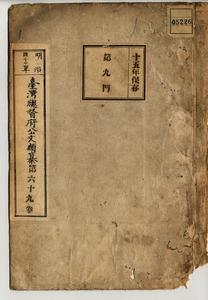 05226
十五年保存
第九門
明治
四十二年
臺灣總督府公文類纂第六十九卷